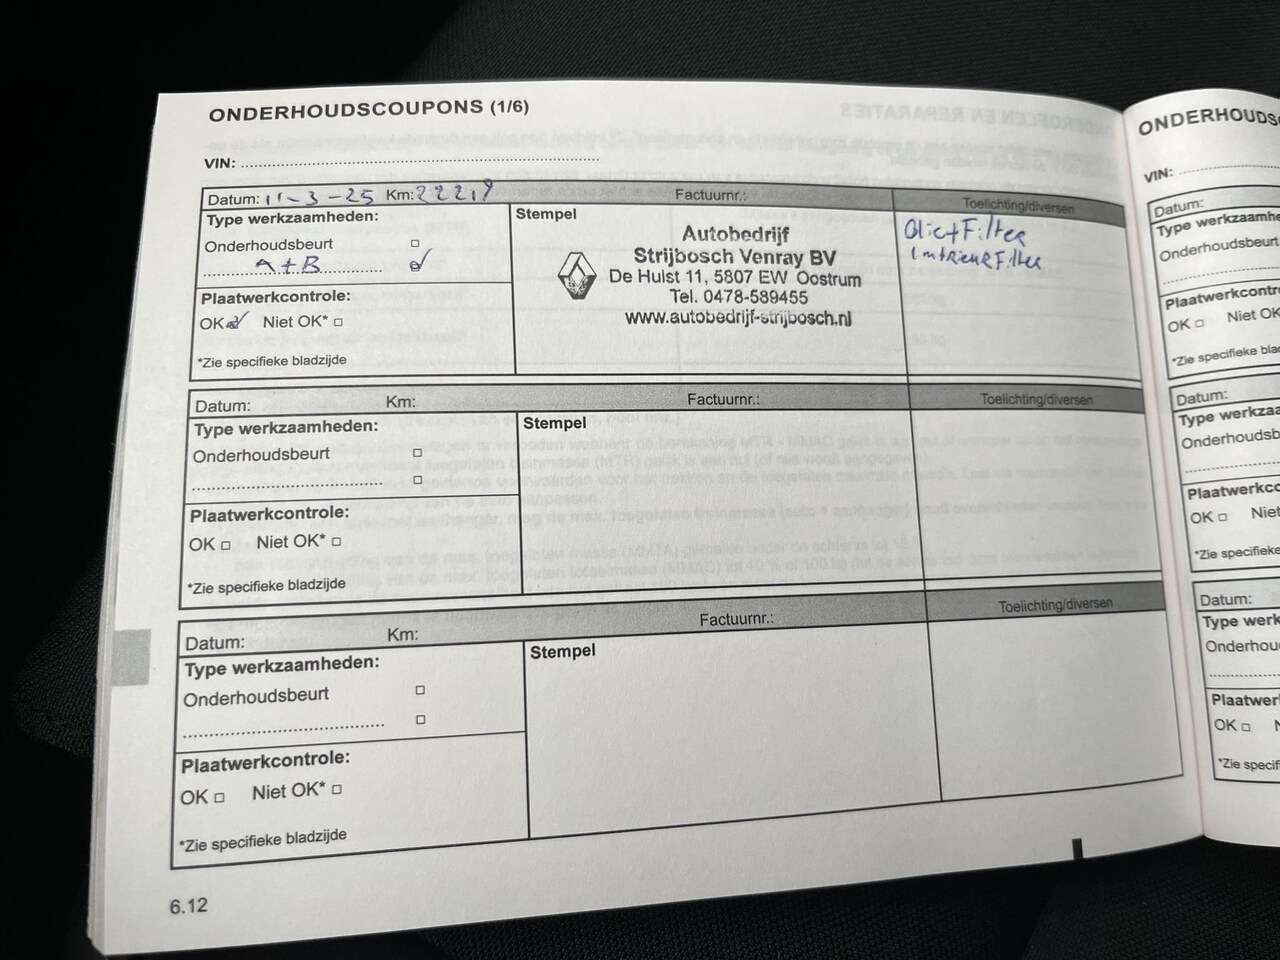 ONDERHOUDSCOUPONS (1/6)
VIN:
Datum: 11-3-25 Km: 22219 Factuurnr.: Toelichting/diversen
Type werkzaamheden:
Onderhoudsbeurt
A+B
Plaatwerkcontrole:
OK Niet OK*
*Zie specifieke bladzijde
Stempel
Autobedrijf
Strijbosch Venray BV
De Hulst 11, 5807 EW Oostrum
Tel. 0478-589455
www.autobedrijf-strijbosch.nl
Olie+Filter
IntRieuR Filter
Datum: Km: Factuurnr.: Toelichting/diversen
Type werkzaamheden:
Onderhoudsbeurt
Plaatwerkcontrole:
OK Niet OK*
*Zie specifieke bladzijde
Stempel
Datum: Km: Factuurnr.: Toelichting/diversen
Type werkzaamheden:
Onderhoudsbeurt
Plaatwerkcontrole:
OK Niet OK*
*Zie specifieke bladzijde
Stempel
6.12
ONDERHOUDS
VIN:
Datum:
Type werkzaamhe
Onderhoudsbeurt
Plaatwerkcontr
OK Niet OK
*Zie specifieke bla
Datum:
Type werkza
Onderhoudsb
Plaatwerkco
OK Niet
*Zie specifieke
Datum:
Type werk
Onderhou
Plaatwer
OK N
*Zie specif